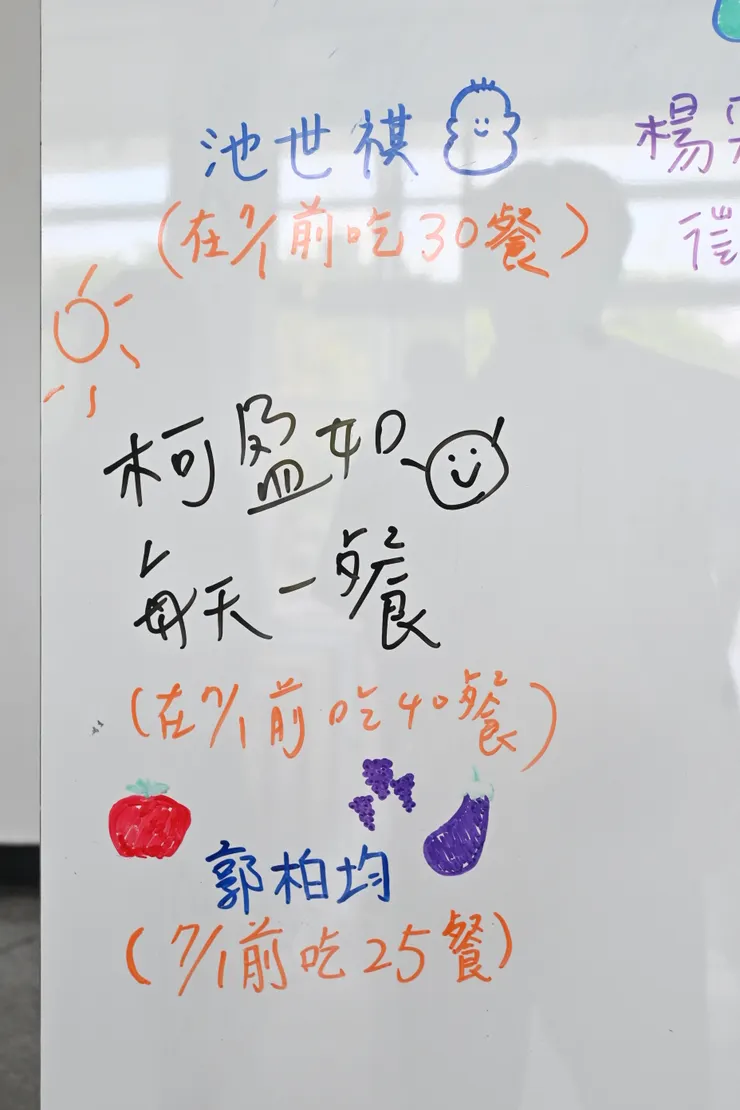 池世祺
(在7/1前吃30餐)
楊
柯盈如
每天一餐
(在7/1前吃40餐)
郭柏均
(7/1前吃25餐)